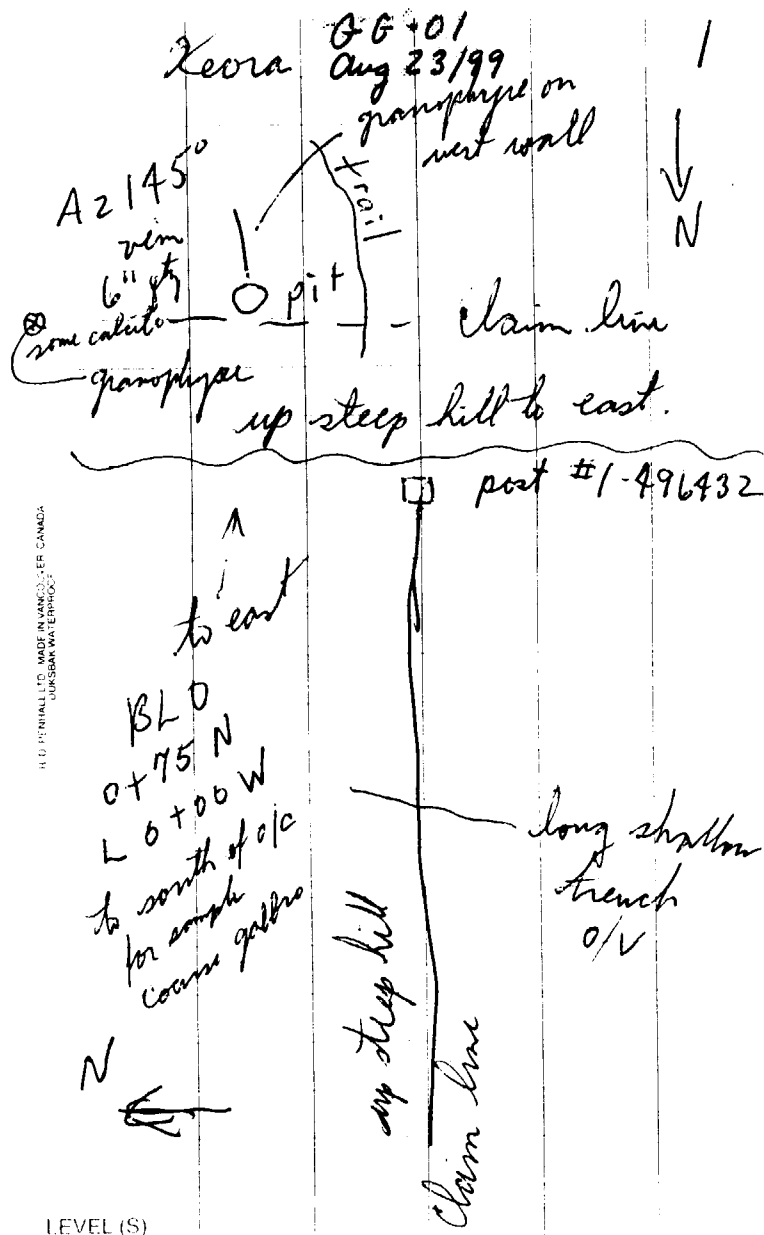 Keora GG-01
Aug 23/99
1
granophyre on
west wall
N
Az 145°
vein
6" qtz
some calcite
granophyre
trail
pit
claim line
up steep hill to east.
post #1-496432
to east
BL 0
0+75 N
L 0+00 W
to south of o/c
for sample
coarse gabbro
long shallow
trench
O/V
up steep hill
Claim line
N
H.D. PENHALL LTD. MADE IN VANCOUVER CANADA
DUKSBAK WATERPROOF
LEVEL (S)